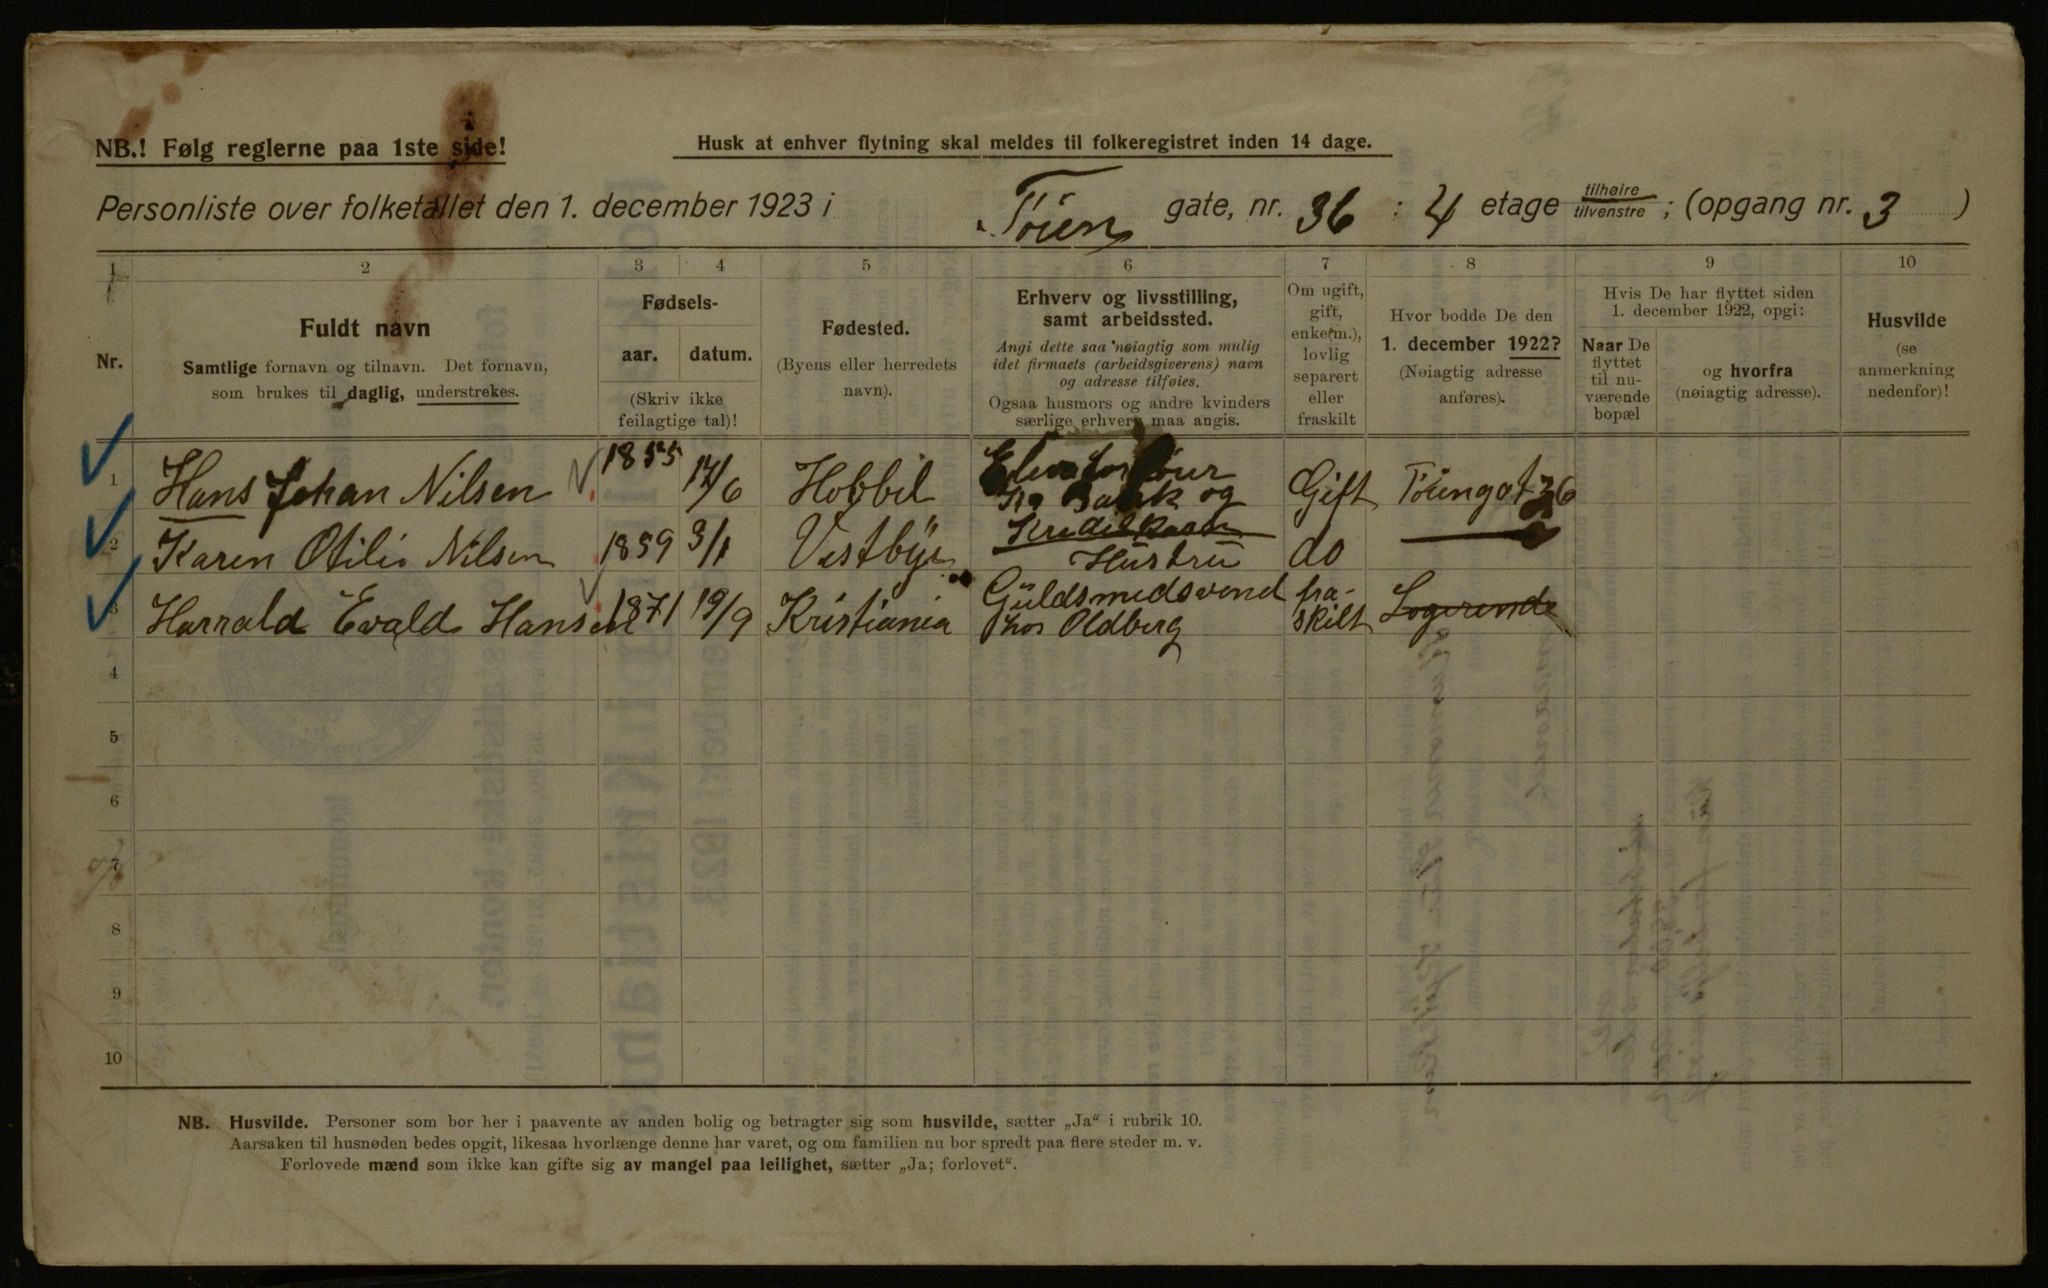 NB.! Følg reglerne paa 1ste side!
Husk at enhver flytning skal meldes til folkeregistret inden 14 dage.
Personliste over folketallet den 1. december 1923 i Töien gate, nr. 36 : 4 etage tilhøire tilvenstre ; (opgang nr. 3 )
1 2 3 4 5 6 7 8 9 10
Nr.
Fuldt navn
Samtlige fornavn og tilnavn. Det fornavn,
som brukes til daglig, understrekes.
Fødsels-
aar. datum.
(Skriv ikke
feilagtige tal)!
Fødested.
(Byens eller herredets
navn).
Erhverv og livsstilling,
samt arbeidssted.
Angi dette saa nøiagtig som mulig
idet firmaets (arbeidsgiverens) navn
og adresse tilføies.
Ogsaa husmors og andre kvinders
særlige erhverv maa angis.
Om ugift,
gift,
enke(m.),
lovlig
separert
eller
fraskilt
Hvor bodde De den
1. december 1922?
(Nøiagtig adresse
anføres).
Hvis De har flyttet siden
1. december 1922, opgi:
Naar De
flyttet
til nu-
værende
bopæl
og hvorfra
(nøiagtig adresse).
Husvilde
(se
anmerkning
nedenfor)!
1 Hans Johan Nilsen 1855 17/6 Hobbil Gift Töiengat 36
og
Kreditkassen
2 Karen Otilie Nilsen 1859 3/1 Vestbÿe Hüstrü do
3 Harrald Evald Hansen 1871 19/9 Kristiania Güldsmedsvend hos Oldberg fra-skilt Logerende
4
5
6
7
8
9
10
NB. Husvilde. Personer som bor her i paavente av anden bolig og betragter sig som husvilde, sætter „Ja“ i rubrik 10.
Aarsaken til husnøden bedes opgit, likesaa hvorlænge denne har varet, og om familien nu bor spredt paa flere steder m. v.
Forlovede mænd som ikke kan gifte sig av mangel paa leilighet, sætter „Ja; forlovet“.